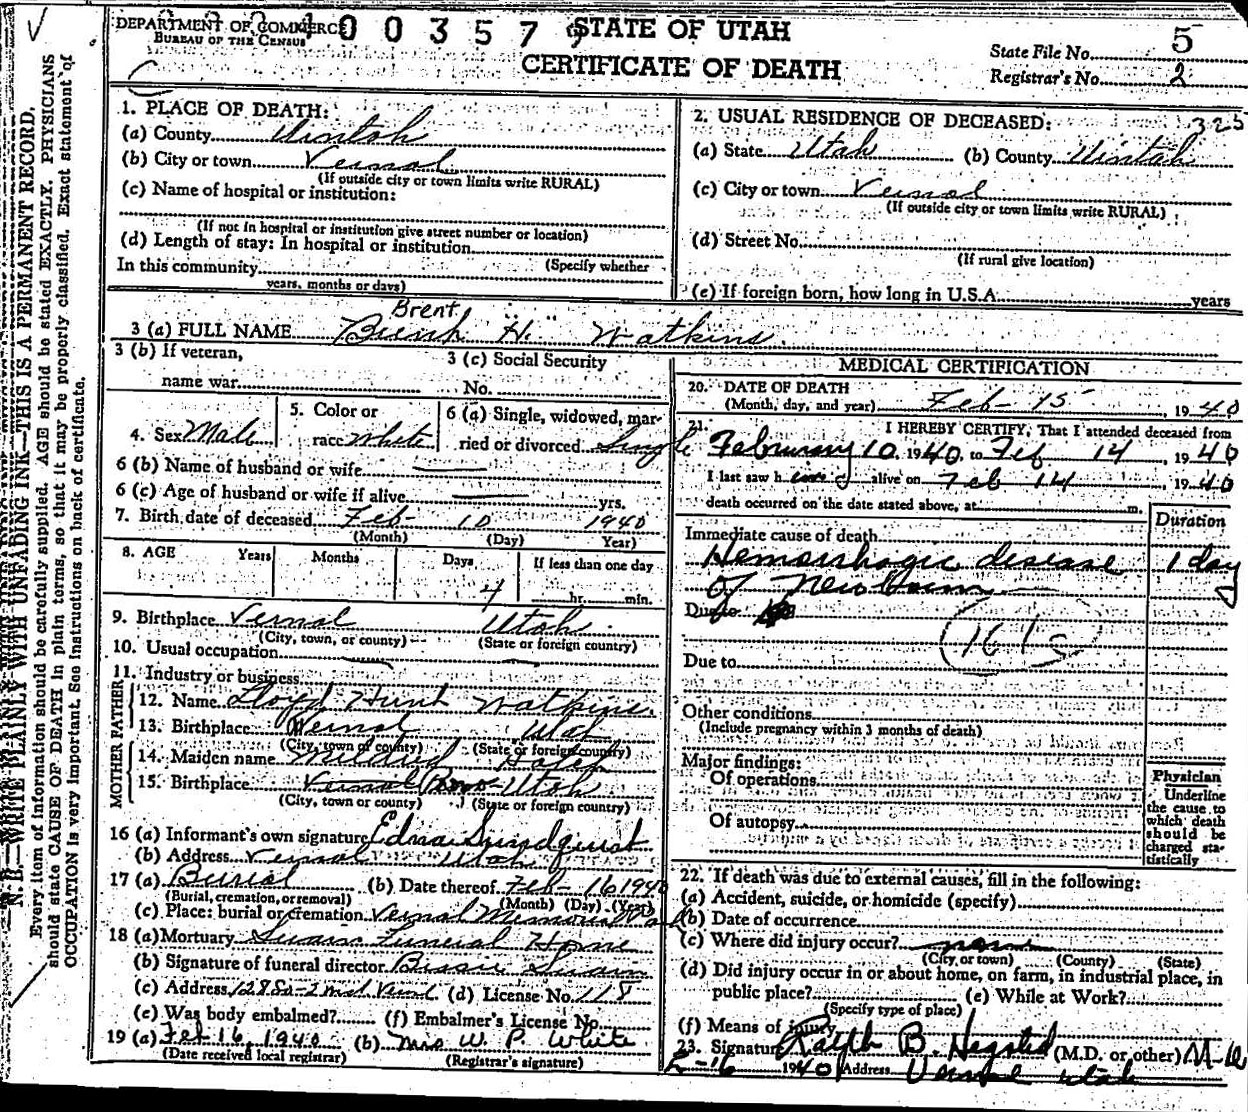 DEPARTMENT OF COMMERCE
BUREAU OF THE CENSUS
0 0 3 5 7 9
STATE OF UTAH
CERTIFICATE OF DEATH
State File No. 5
Registrar's No. 2
N. B.—WRITE PLAINLY WITH UNFADING INK—THIS IS A PERMANENT RECORD.
Every item of information should be carefully supplied. AGE should be stated EXACTLY. PHYSICIANS
should state CAUSE OF DEATH in plain terms, so that it may be properly classified. Exact statement of
OCCUPATION is very important. See instructions on back of certificate.
1. PLACE OF DEATH:
(a) County Uintah
(b) City or town Vernal
(If outside city or town limits write RURAL)
(c) Name of hospital or institution:
(If not in hospital or institution give street number or location)
(d) Length of stay: In hospital or institution
(Specify whether
In this community
years, months or days)
2. USUAL RESIDENCE OF DECEASED:
325
(a) State Utah (b) County Uintah
(c) City or town Vernal
(If outside city or town limits write RURAL)
(d) Street No.
(If rural give location)
(e) If foreign born, how long in U.S.A. years
Brent
3 (a) FULL NAME H. Watkins.
3 (b) If veteran,
name war
3 (c) Social Security
No.
4. Sex Male
5. Color or
race White
6 (a) Single, widowed, mar-
ried or divorced Single
6 (b) Name of husband or wife
6 (c) Age of husband or wife if alive yrs.
7. Birth date of deceased Feb- 10 1940
(Month) (Day) Year)
8. AGE Years Months Days If less than one day
4 hr. min.
9. Birthplace Vernal Utah
(City, town, or county) (State or foreign country)
10. Usual occupation
11. Industry or business
FATHER
12. Name Lloyd Hunt Watkins
13. Birthplace Vernal Utah
(City, town or county) (State or foreign country)
MOTHER
14. Maiden name Mildred Hatch
15. Birthplace Vernal Utah
(City, town or county) (State or foreign country)
16 (a) Informant's own signature Edna Sundquist
(b) Address Vernal Utah
17 (a) Burial (b) Date thereof Feb- 16 1940
(Burial, cremation, or removal) (Month) (Day) (Year)
(c) Place: burial or cremation Vernal Memorial Park
18 (a) Mortuary Swain Funeral Home
(b) Signature of funeral director Bessie Swain
(c) Address (d) License No. 118
(e) Was body embalmed? (f) Embalmer's License No.
19 (a) Feb 16, 1940 (b) Mrs W. P. White
(Date received local registrar) (Registrar's signature)
MEDICAL CERTIFICATION
20. DATE OF DEATH
(Month, day, and year) Feb- 15, 1940
21. I HEREBY CERTIFY, That I attended deceased from
February 10, 1940, to Feb 14, 1940
I last saw h alive on Feb 14, 1940
death occurred on the date stated above, at m.
Duration
Immediate cause of death
Hemorrhagic disease 1 day
of Newborn
Due to
161c
Due to
Other conditions
(Include pregnancy within 3 months of death)
Major findings:
Of operations
Of autopsy
Physician
Underline
the cause to
which death
should be
charged sta-
tistically
22. If death was due to external causes, fill in the following:
(a) Accident, suicide, or homicide (specify)
(b) Date of occurrence
(c) Where did injury occur?
(City, or town) (County) (State)
(d) Did injury occur in or about home, on farm, in industrial place, in
public place? (e) While at Work?
(Specify type of place)
(f) Means of injury
23. Signature Ralph B. Hegsted (M.D. or other) M-D
2-16 1940 Address Vernal Utah